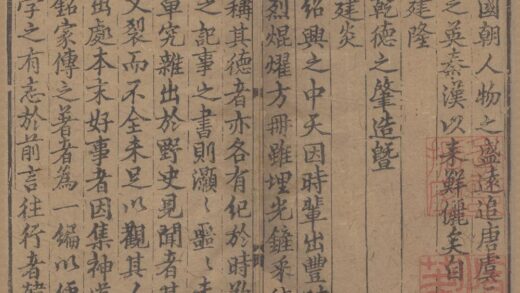 國朝人物之盛遠追唐虞
之英秦漢以来鮮儷矣自
建隆
乾德之肇造暨
建炎
紹興之中天因時輩出豐
烈焜燿方冊雖埋光鏟采
稱其德者亦各有紀於時
之記事之書則灝〻噩〻
究雜出於野史見聞者其
裂而不全未足以觀其
出處本末好事者因集神道
銘家傳之著者為一編以便
之有志於前言往行者